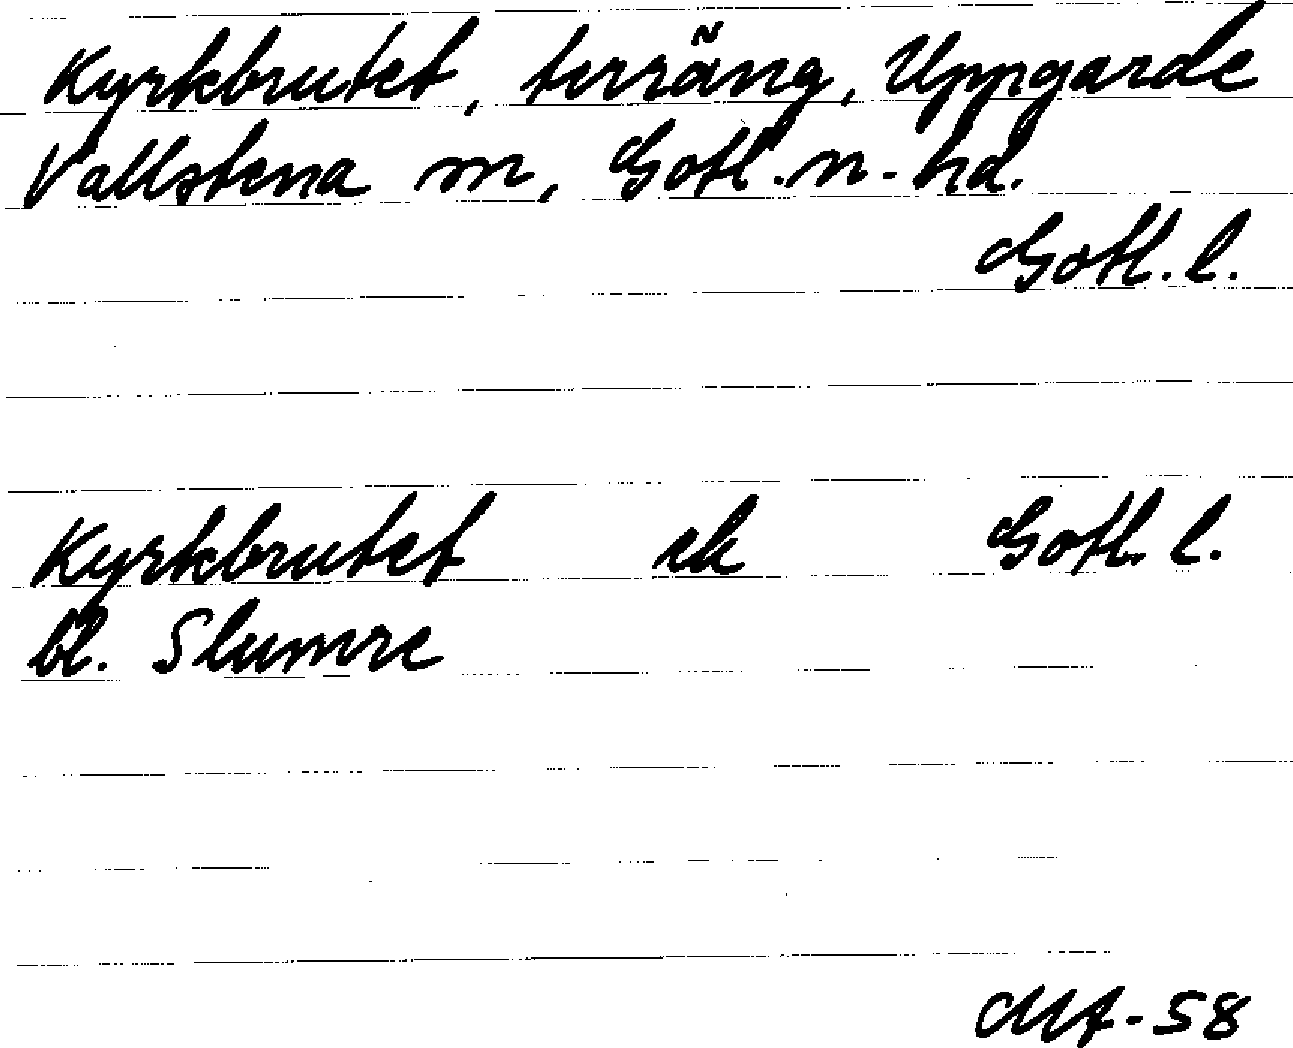 Kyrkbrutet, terräng, Uppgarde
Vallstena sn, Gotl. n. hd.
Gotl. l.
Kyrkbrutet ek Gotl. l.
bl. Slumre
-58